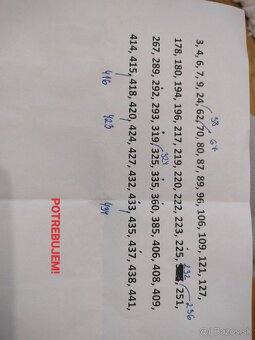 38 67
3, 4, 6, 7, 9, 24, 62, 70, 80, 87, 89, 96, 106, 109, 121, 127,
232 236
178, 180, 194, 196, 217, 219, 220, 222, 223, 225, , 251,
324
267, 289, 292, 293, 319, 325, 335, 360, 385, 406, 408, 409,
414, 415, 418, 420, 424, 427, 432, 433, 435, 437, 438, 441,
416 423 434
POTREBUJEM!
bazos.sk